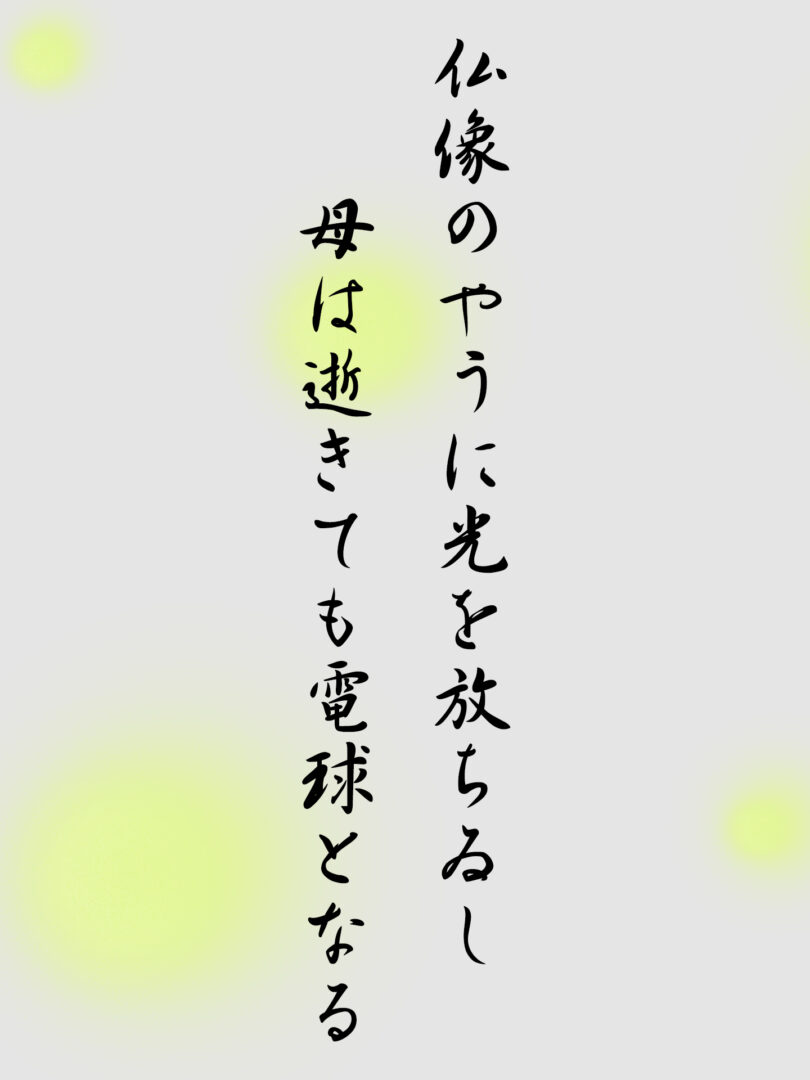 仏像のやうに光を放ちゐし
母は逝きても電球となる